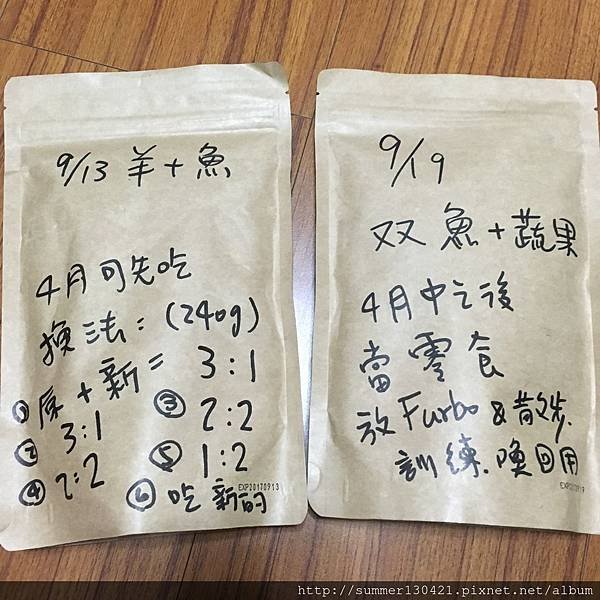 9/13 羊+魚
4月可先吃
換法:(240g)
①原+新=3:1
② 3:1
③ 2:2
④ 2:2
⑤ 1:2
⑥吃新的
EXP20170913
9/19
双魚+蔬果
4月中之後
當零食
放Furbo&散步.
訓練.喚回用
EXP20170919
http://summer130421.pixnet.net/album